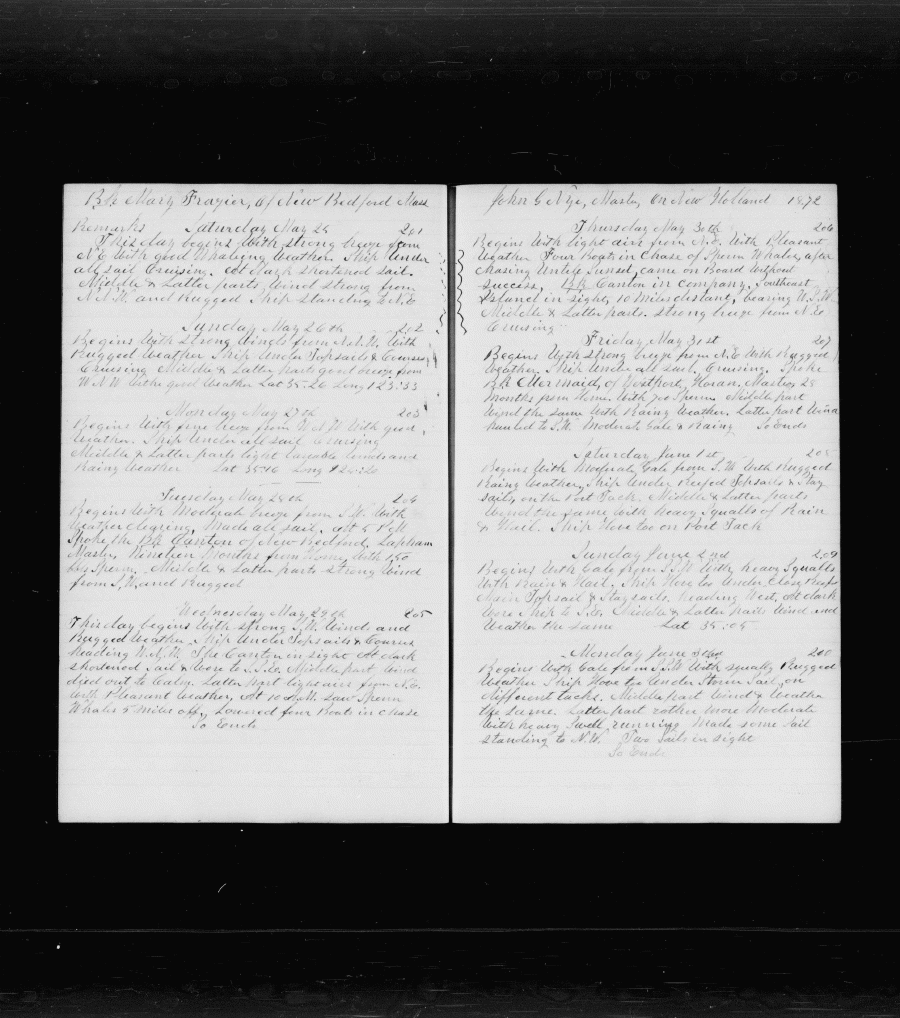 Bk Mary Frazier, of New Bedford Mass
Remarks Saturday May 25 201
This day begins With strong breeze from
N.E. With good Whaleing Weather. Ship Under
all sail Cruising. At Dark shortened sail.
Middle & Latter parts Wind strong from
N.N.W. and Rugged Ship standing to N.E.
Sunday May 26th 202
Begins With strong Winds from N.N.W. With
Rugged Weather Ship Under Topsails & Courses
Cruising Middle & Latter parts good breeze from
W.N.W. With good Weather Lat 35.26 Long 123.33
Monday May 27th 203
Begins With fine breeze from W.N.W. With good
Weather. Ship Under all sail Cruising
Middle & Latter parts light winds and
Rainy Weather Lat 35.16 Long 124.20
Tuesday May 28th 204
Begins With Moderate breeze from S.W. With
Weather clearing. Made all sail. At 5 P.M.
Spoke the Bk Canton of New Bedford, Lapham
Master, Nineteen Months from Home, With 150
bls Sperm. Middle & Latter parts strong Wind
from S.W. and Rugged
Wednesday May 29th 205
This day begins With strong S.W. Winds and
Rugged Weather. Ship Under Topsails & Courses
heading W.N.W. The Canton in sight At dark
shortened Sail & Wore to S.E. Middle part Wind
died out to Calm. Latter part light airs from N.E.
With Pleasant Weather, At 10 A.M. saw Sperm
Whales 5 Miles off. Lowered four Boats in chase
So Ends
John G Nye, Master, On New Holland 1872
Thursday May 30th 206
Begins With light airs from N.E. With Pleasant
Weather Four Boats in Chase of Sperm Whales, after
chasing Untill Sunset, came on Board Without
success, Bk Canton in company. Southeast
Island in sight, 10 Miles distant, bearing
Middle & Latter parts. strong breeze from N.E.
Cruising
Friday May 31st 207
Begins With strong breeze from N.E. With Rugged
Weather. Ship Under all sail. Cruising. Spoke
Bk Mermaid, of Westport, Master, 29
Months from Home. With 700 Sperm. Middle part
Wind the same With Rainy Weather. Latter part Wind
hauled to S.W. Moderate Gale & Rainy So Ends
Saturday June 1st 208
Begins With Moderate Gale from S.W. With Rugged
Rainy Weather, Ship Under Reefed Topsails & Stay
sails, on the Port Tack. Middle & Latter parts
Wind the same with heavy Squalls of Rain
& Hail. Ship Hove too on Port Tack
Sunday June 2nd 209
Begins With Gale from S.W. With heavy Squalls
With Rain & Hail. Ship Hove too Under Close Reef
Main Topsail & Staysails, heading West, At dark
Wore Ship to S.E. Middle & Latter parts Wind and
Weather the same Lat 35.05
Monday June 3rd 210
Begins With Gale from S.W. With squally & Rugged
Weather Ship Hove too Under Storm Sail, on
different tacks. Middle part Wind & Weather
the same. Latter part rather more Moderate
With heavy Swell running Made some Sail
standing to N.W. Two Sails in sight
So Ends